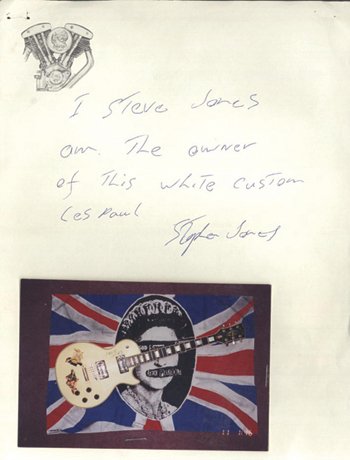 I Steve Jones
am The owner
of This white custom
Les Paul
Stephen Jones